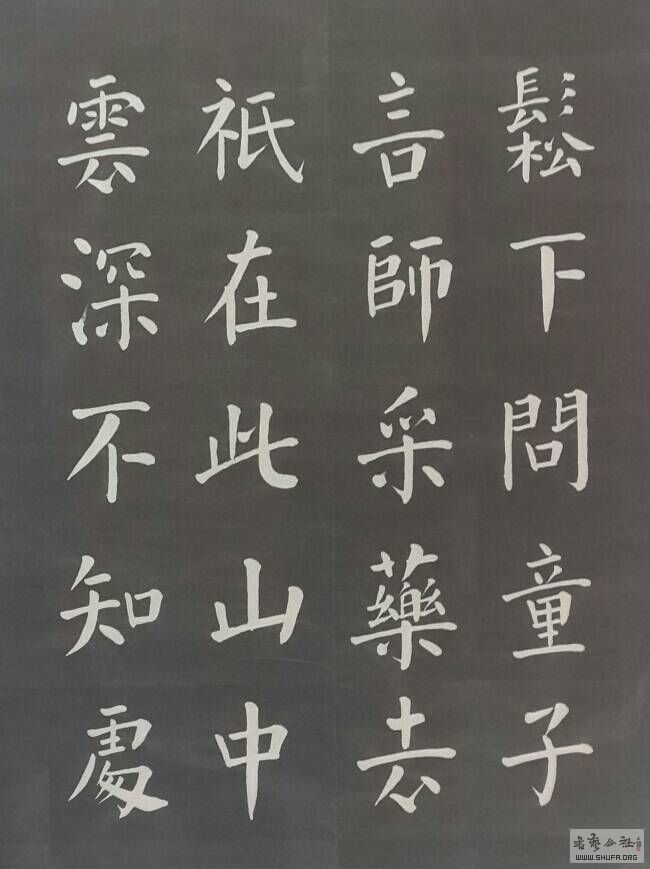 鬆下問童子
言師采藥去
祇在此山中
雲深不知處
書藝公社
WWW.SHUFA.ORG